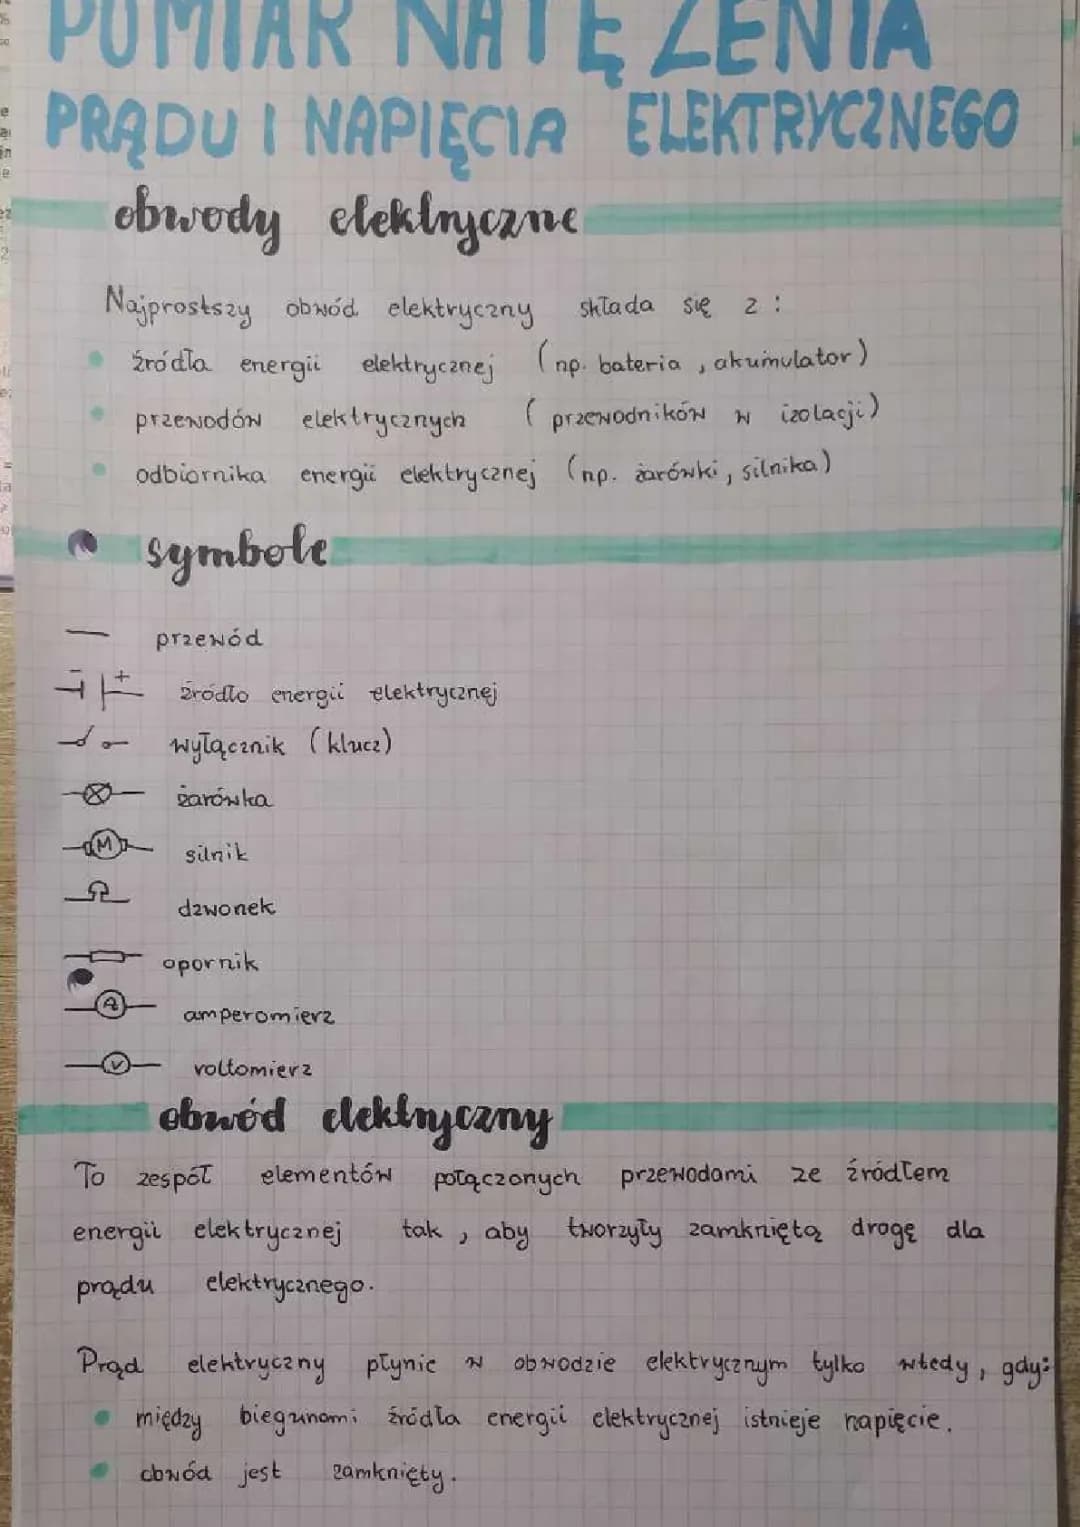 POMIAR NATĘŻENIA
PRĄDU I NAPIĘCIA ELEKTRYCZNEGO
obwody elektryczne
Najprostszy obwód elektryczny składa się z :
źródła energii elektrycznej (np. bateria , akumulator)
przewodów elektrycznych ( przewodników w izolacji)
odbiornika energii elektrycznej (np. żarówki, silnika)
symbole
przewód
- + źródło energii elektrycznej
wyłącznik (klucz)
żarówka
M silnik
dzwonek
opornik
A amperomierz
V voltomierz
obwód elektryczny
To zespół elementów połączonych przewodami ze źródłem
energii elektrycznej tak , aby tworzyły zamkniętą drogę dla
prądu elektrycznego.
Prąd elektryczny płynie w obwodzie elektrycznym tylko wtedy, gdy:
między biegunami źródła energii elektrycznej istnieje napięcie.
obwód jest zamknięty.